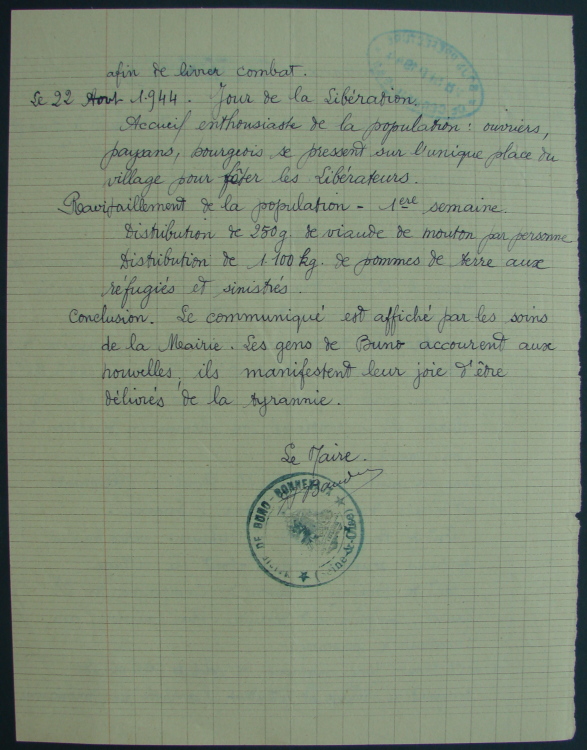 afin de livrer combat.
Le 22 Août 1944. Jour de la Libération.
Accueil enthousiaste de la population : ouvriers,
paysans, bourgeois se pressent sur l'unique place du
village pour fêter les Libérateurs.
Ravitaillement de la population - 1ère semaine.
Distribution de 250g. de viande de mouton par personne
Distribution de 1.100 kg. de pommes de terre aux
réfugiés et sinistrés.
Conclusion. Le communiqué est affiché par les soins
de la Mairie. Les gens de Buno accourent aux
nouvelles, ils manifestent leur joie d'être
délivrés de la tyrannie.
Le Maire.
MAIRIE DE BUNO-BONNEVAUX
(Seine-&-Oise)